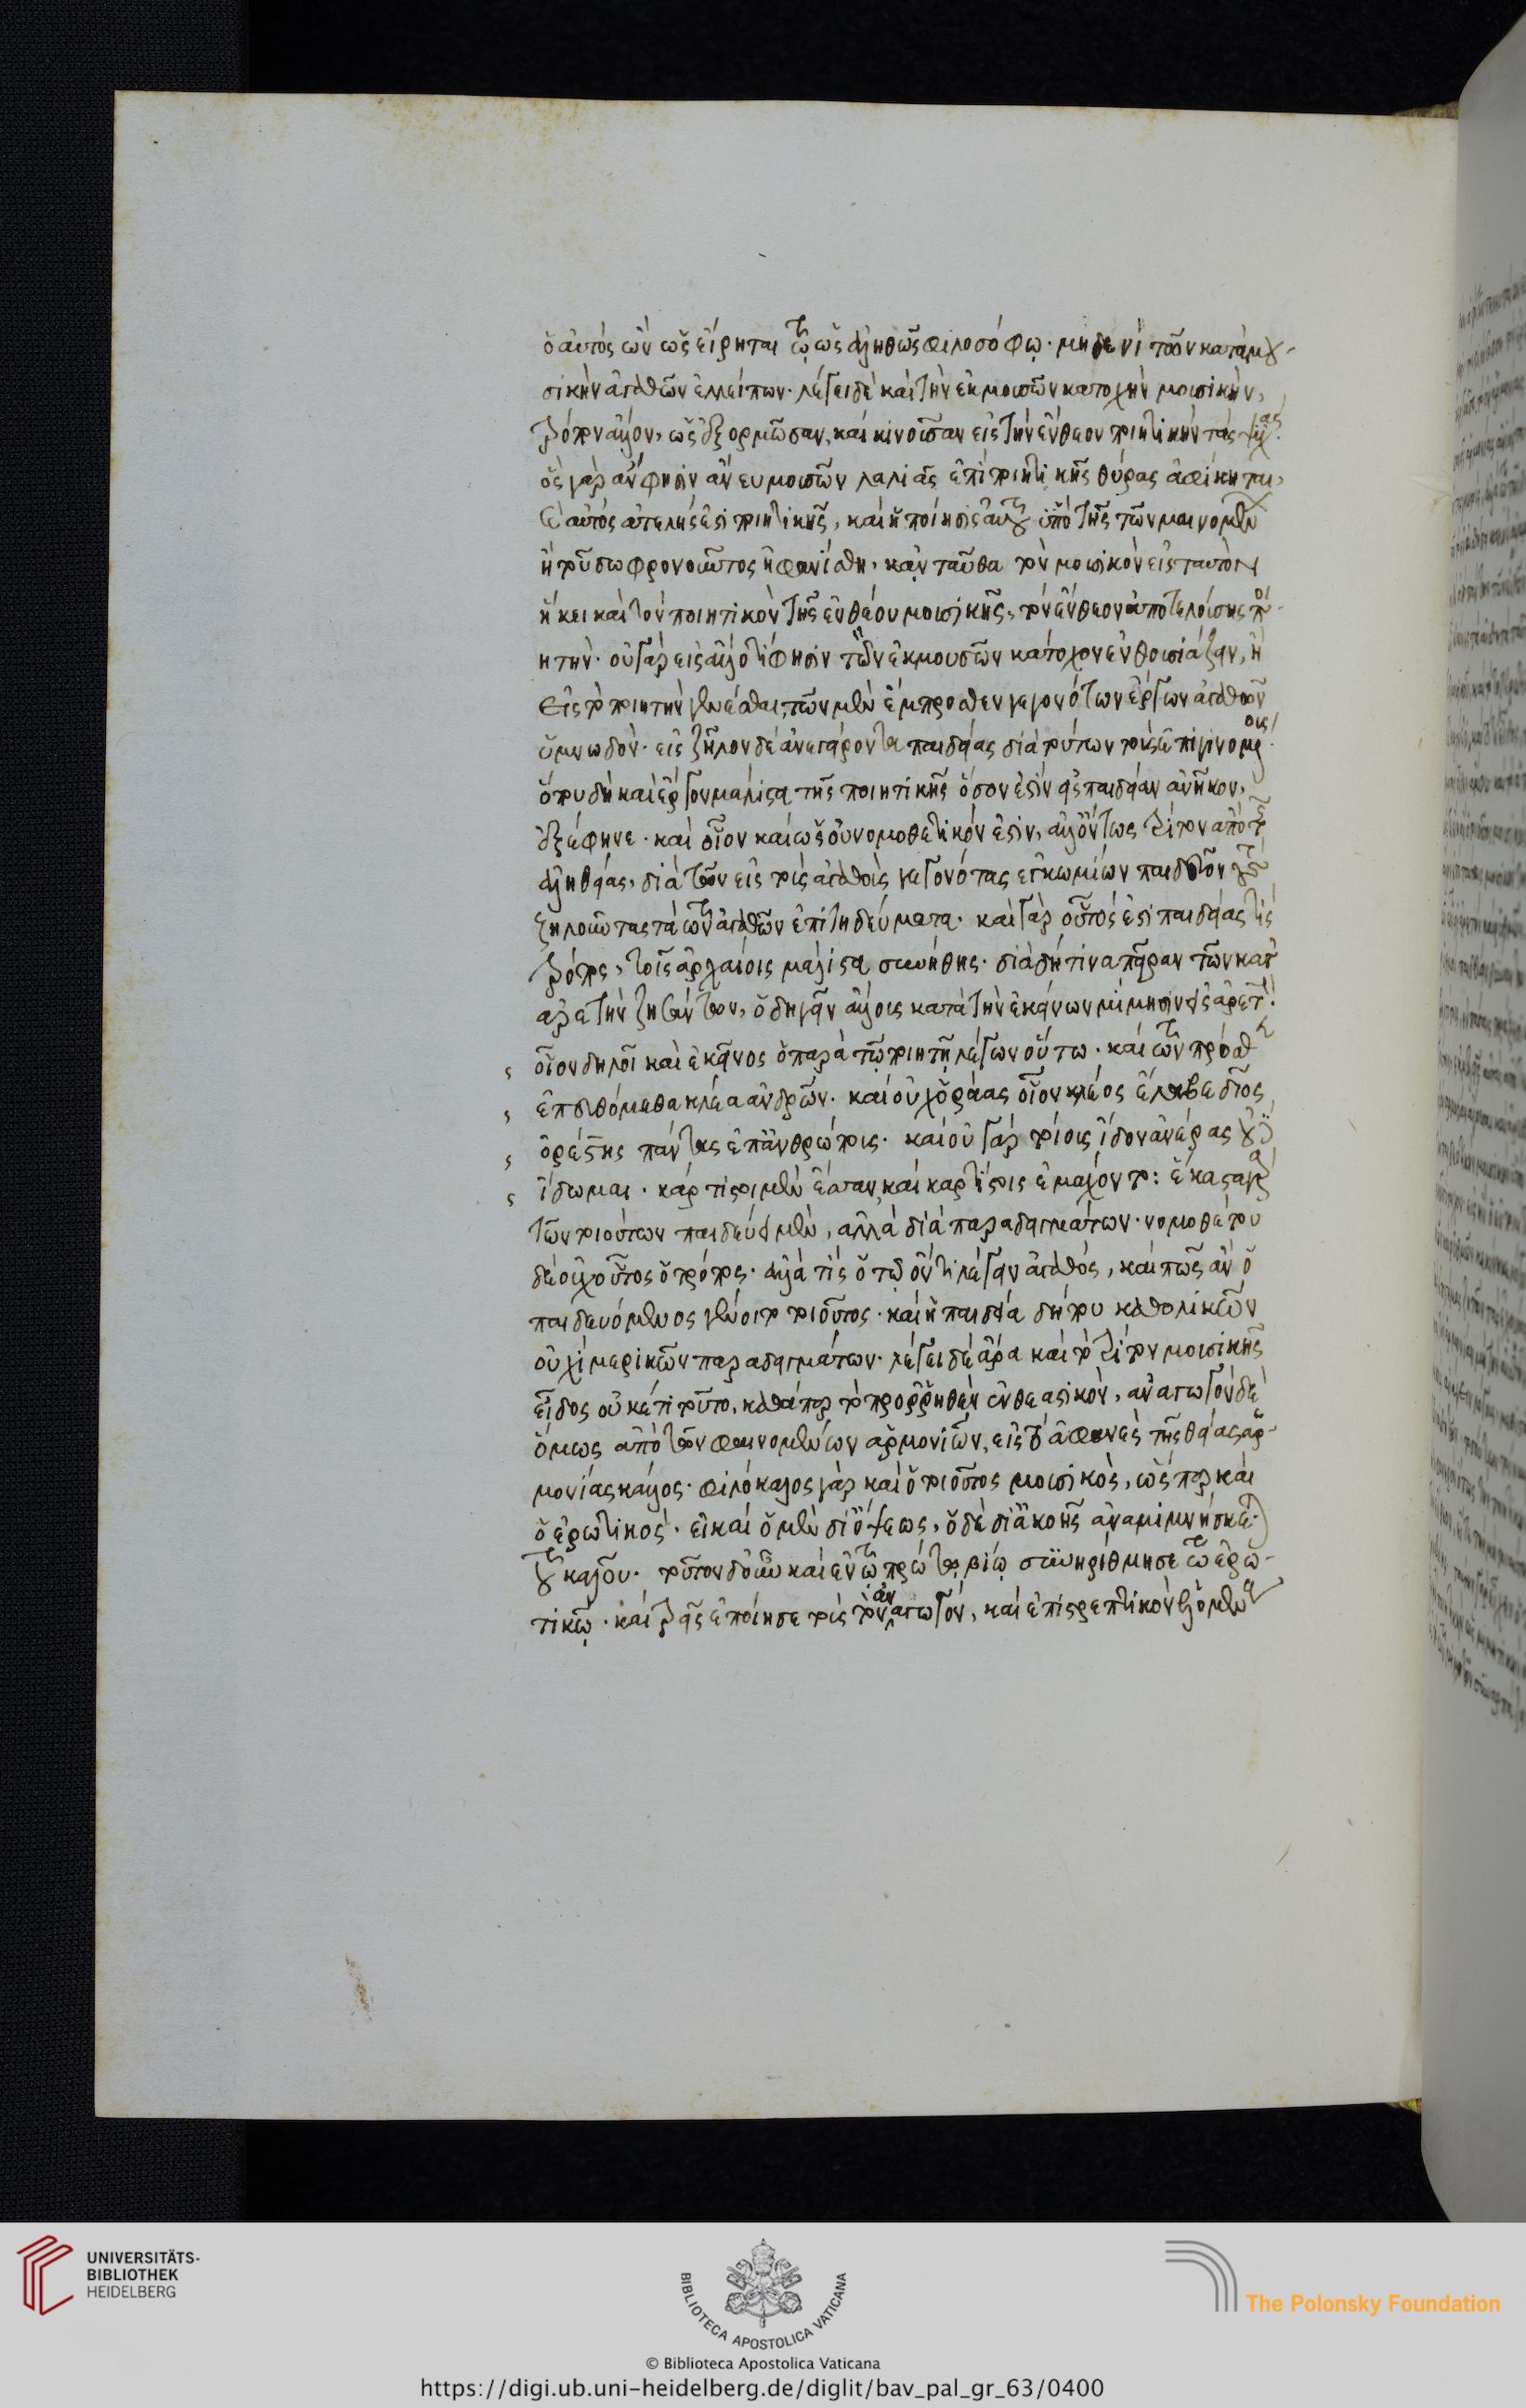 ὁ αὐτὸς ὢν ὡς εἴρηται τῷ ὡς ἀληθῶς φιλοσόφῳ· μηδενὶ τῶν κατὰ μου-
σικὴν ἀγαθῶν ἐλλείπων· λέγει δὲ καὶ τὴν ἐκ μουσῶν κατοχὴν μουσικὴν,
τρόπον ἄλλον, ὡς ἐξορμῶσαν, καὶ κινοῦσαν εἰς τὴν ἔνθεον ποιητικὴν τὰς ψυχάς.
ὃς γὰρ ἂν φησὶν ἄνευ μουσῶν μανίας ἐπὶ ποιητικῆς θύρας ἀφίκηται,
αὐτός ἀτελής ἐστι ποιητικῆς, καὶ ἡ ποίησις αὐτοῦ ὑπὸ τῆς τῶν μαινομένων
ἡ τοῦ σωφρονοῦντος ἠφανίσθη· κἀνταῦθα τὸν μουσικὸν εἰς ταυτὸν
ἥκει καὶ τὸν ποιητικὸν τῆς ἐνθέου μουσικῆς, τὸν ἔνθεον ἀποτελούσης ποι-
ητήν· οὐ γὰρ εἰς ἄλλο τί φησιν τῶν ἐκ μουσῶν κάτοχον ἐνθουσιάζειν, ἢ
εἰς τὸ ποιητὴν γενέσθαι, τῶν μὲν ἔμπροσθεν γεγονότων ἔργων ἀγαθῶν
ὑμνωδόν· εἰς ζῆλον δὲ ἀνεγείροντα παιδείας διὰ τούτων τοὺς ἐπιγινομένους·
ὅπου δὴ καὶ ἔργον μάλιστα τῆς ποιητικῆς ὅσον ἐστὶν εἰς παιδείαν ἀνῆκον,
ἐξέφηνε· καὶ οἷον καὶ ὡς οὐ νομοθετικόν ἐστιν, ἀλλ' ὄντως τρίτον ἀπὸ τῆς
ἀληθείας, διὰ τῶν εἰς τοὺς ἀγαθοὺς γεγονότας ἐγκωμίων παιδεῦον τοὺς
ζηλοῦντας τὰ τῶν ἀγαθῶν ἐπιτηδεύματα· καὶ γὰρ οὗτός ἐστι παιδείας τις
τρόπος, τοῖς ἀρχαίοις μάλιστα συνήθης· διὰ δή τινα πεῖραν τῶν κατ'
ἀρετὴν ζητῶν τῶν, ὁδηγεῖν ἄλλους κατὰ τὴν ἐκείνων μίμησιν εἰς ἀρετήν·
οἷον δηλοῖ καὶ ἐκεῖνος ὁ παρὰ τῷ ποιητῇ λέγων οὕτω· καὶ τῶν πρόσθεν
ἐπευθόμεθα κλέα ἀνδρῶν· καὶ οὐχ ὁράας οἷον κλέος ἔλλαβε δῖος
ὀρέστης πάντας ἐπ' ἀνθρώπους· καὶ οὐ γὰρ τοίους ἴδον ἀνέρας οὐδὲ
ἴδωμαι· κάρτιστοι μὲν ἔσαν, καὶ καρτίστοις ἐμάχοντο: ἕκαστα γὰρ
τῶν τοιούτων παιδεύει μὲν, ἀλλὰ διὰ παραδειγμάτων· νομοθέτου
δὲ οὐχ οὗτος ὁ τρόπος· ἀλλὰ τίς ὁ τῷ ὄντι λέγειν ἀγαθός, καὶ πῶς ἂν ὁ
παιδευόμενος γένοιτο τοιοῦτος· καὶ ἡ παιδεία δήπου καθολικῶν
οὐχὶ μερικῶν παραδειγμάτων· λέγει δὲ ἄρα καὶ τὸ τρίτον μουσικῆς
εἶδος οὐκέτι τοῦτο, καθάπερ τὸ προρρηθὲν ἐνθεαστικὸν, ἀναγωγὸν δὲ
ὅμως ἀπὸ τῶν φαινομένων ἁρμονιῶν, εἰς τὸ ἀφανὲς τῆς θείας ἁρ-
μονίας κάλλος· φιλόκαλος γὰρ καὶ ὁ τοιοῦτος μουσικὸς, ὥσπερ καὶ
ὁ ἐρωτικὸς· εἰ καὶ ὁ μὲν δι' ὄψεως, ὁ δὲ δι' ἀκοῆς ἀναμιμνήσκεται
τοῦ καλοῦ· τοῦτον δ' οὖν καὶ ἐν τῷ πρώτῳ βίῳ συνηρίθμησε τῷ ἐρω-
τικῷ· καὶ τρεῖς ἐποίησε τοὺς τὸν ἀναγωγὸν, καὶ ἐπιστρεπτικὸν